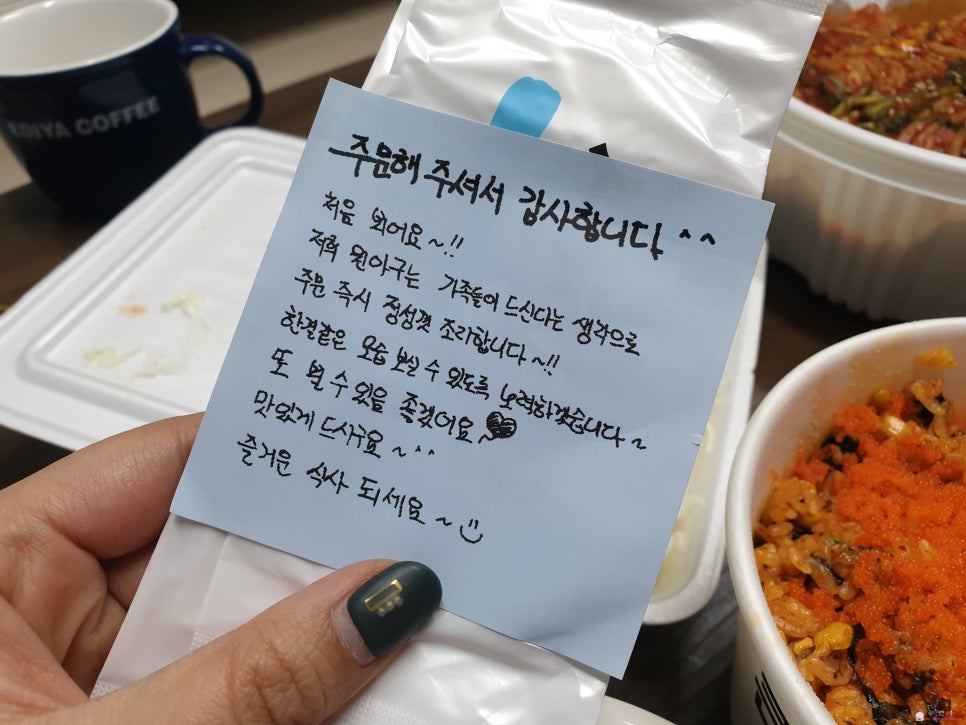 EDIYA COFFEE
주문해 주셔서 감사합니다 ^^
처음 봬어요~!!
저희 원아구는 가족들이 드신다는 생각으로
주문 즉시 정성껏 조리합니다~!!
한결같은 모습 보실 수 있도록 노력하겠습니다~
또 뵐 수 있음 좋겠어요~♥
맛있게 드시구요~^^
즐거운 식사 되세요~☺